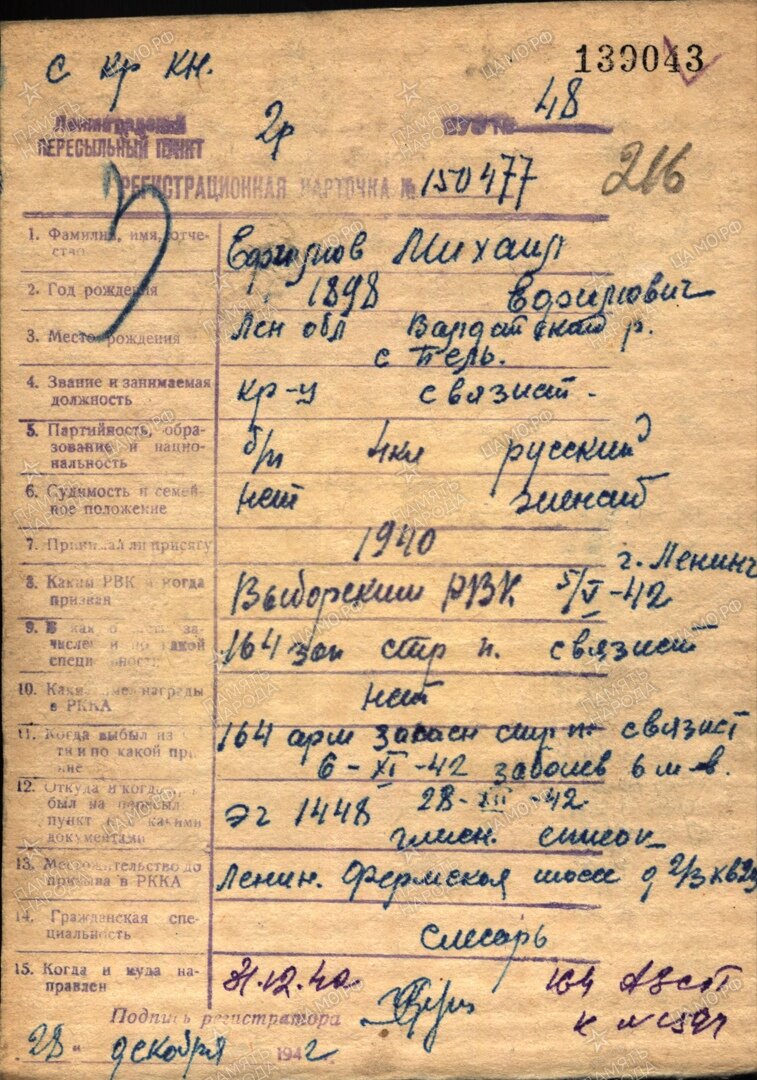 с кр кн.
139043
Ленинградский
ПЕРЕСЫЛЬНЫЙ ПУНКТ
2р
48
РЕГИСТРАЦИОННАЯ КАРТОЧКА № 150477
216
1. Фамилия, имя, отчество
Ефимов Михаил
Ефимович
2. Год рождения
1898
3. Место рождения
Лен обл
р.
с Пель.
4. Звание и занимаемая должность
кр-ц связист.
5. Партийность, образование и национальность
б/п 4кл русский
6. Судимость и семейное положение
нет женат
7. Принимал ли присягу
1940
8. Каким РВК и когда призван
г. Ленинг
Выборским РВК 5/V-42
9. В
164 зап стр п. связист
10. Какие имел награды в РККА
нет
11. Когда выбыл из части и по какой причине
164 арм запасн стр п- связист
6-XI-42 заболев 6 м-в.
12. Откуда и когда прибыл на пересыльн. пункт и с какими документами
эг 1448 28-XII-42
список
13. Местожительство до призыва в РККА
Ленин. Фермской шоссе д 2/3 кв29
14. Гражданская специальность
слесарь
15. Когда и куда направлен
31.12.42
164 АЗСП
к №
Подпись регистратора
28 " декабря 1942